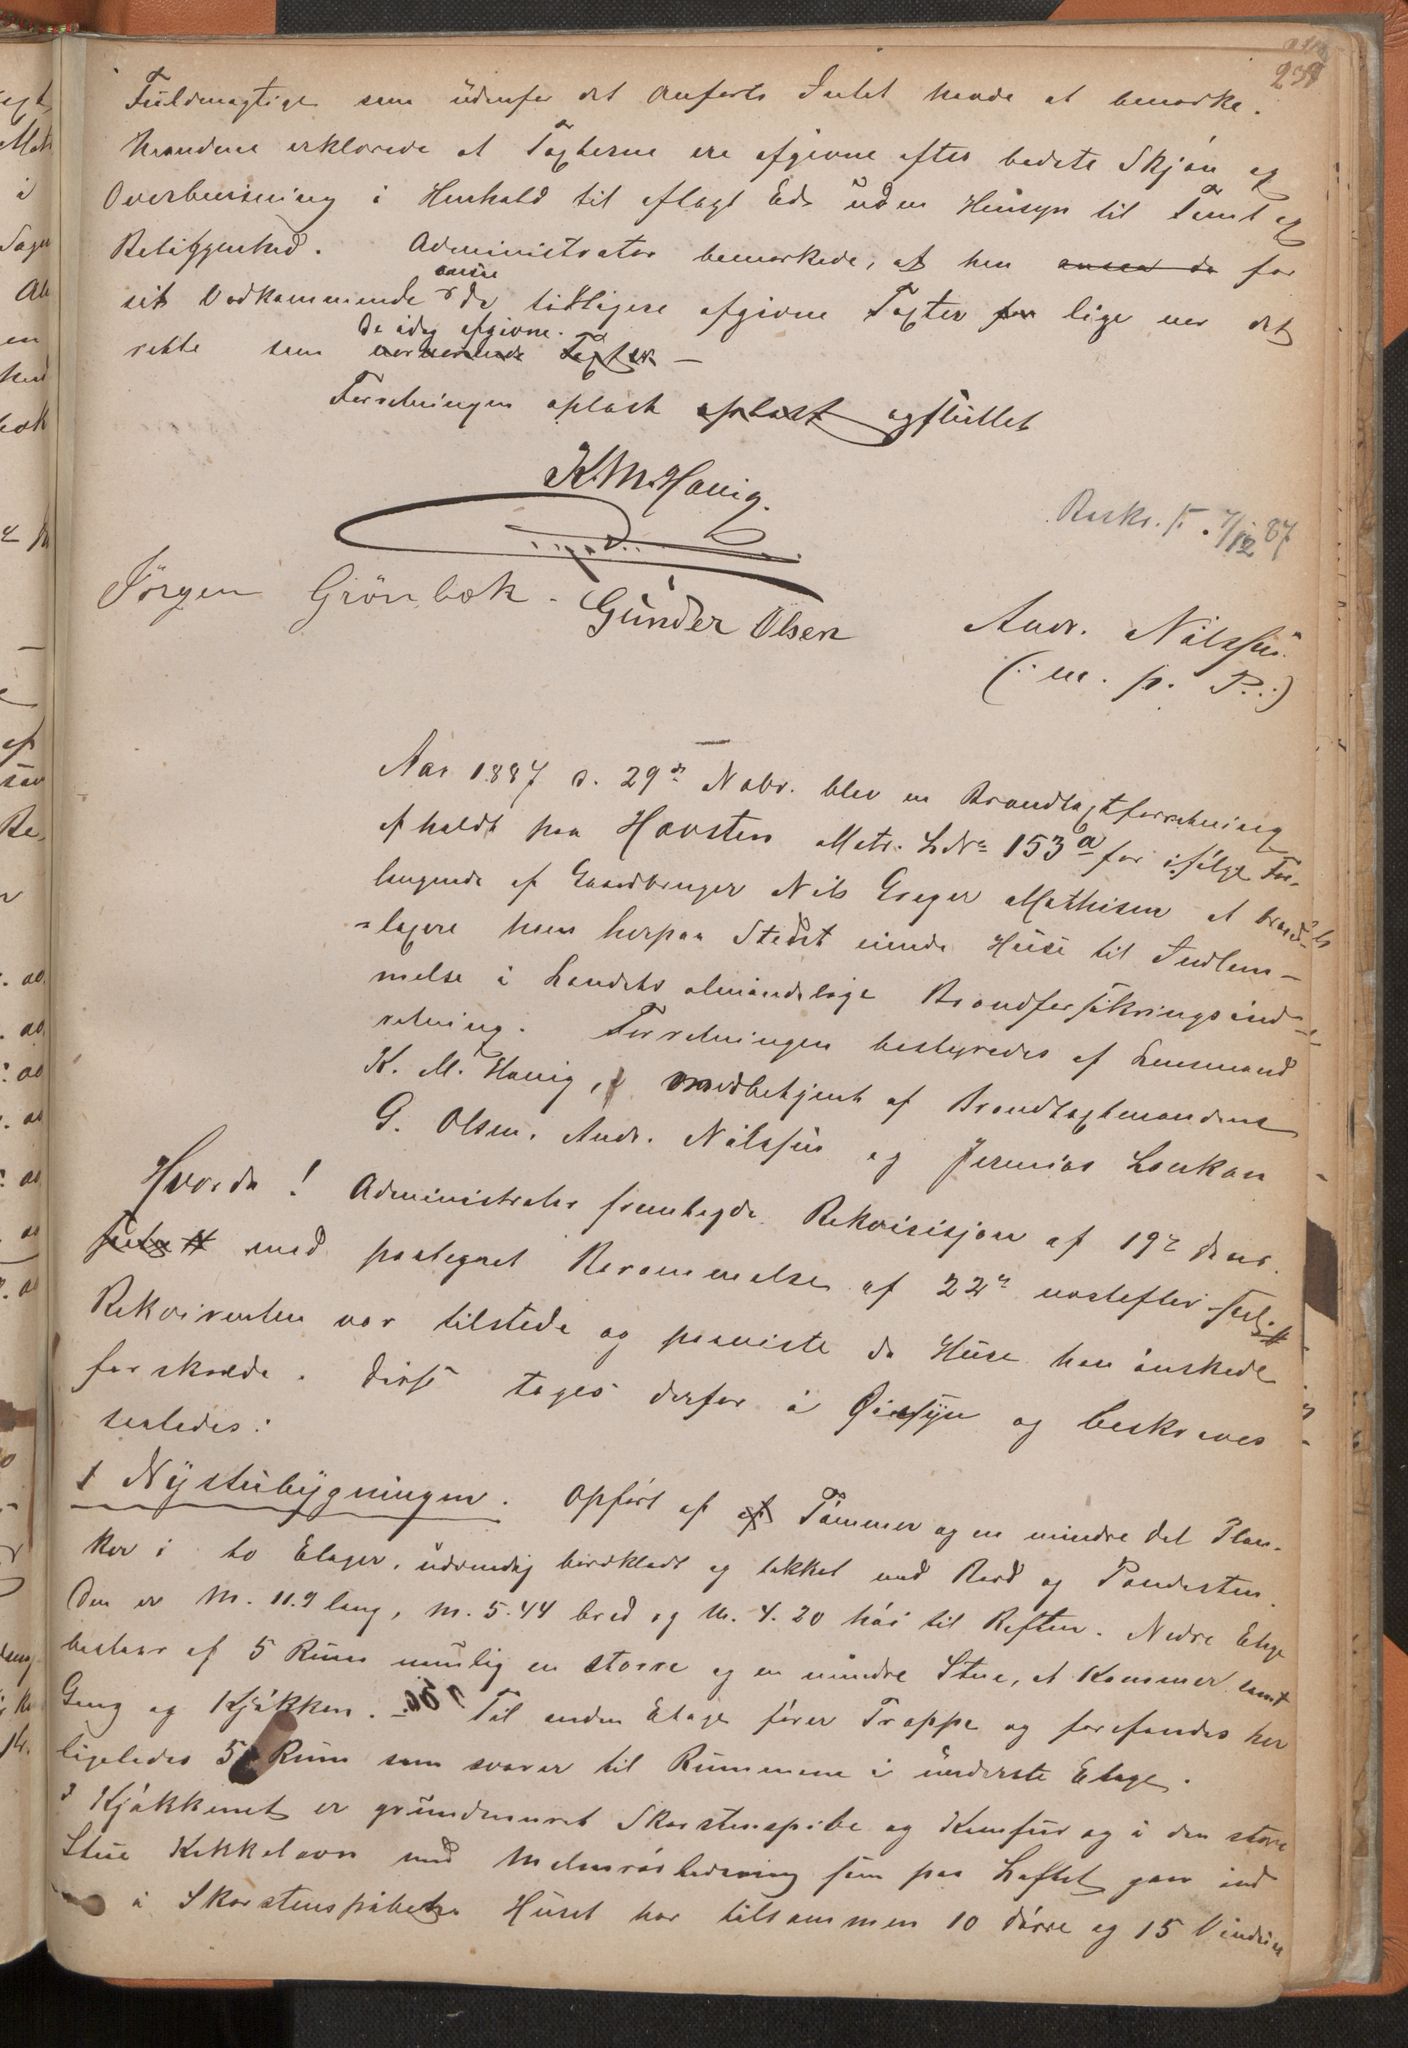 238
Fuldmægtige som udenfor det Anførte Intet havde at bemærke.
Mændene erklærede at Taxterne ere afgivne efter bedste Skjøn og
Overbeviisning i Henhold til aflagt Ed uden Hensyn til Tomt og
Beliggenhed. Administrator bemærkede, at han ansaa de for
sit Vedkommende ansaa de tidligere afgivne Taxter for lige nær det
rette som de idag afgivne. nærværende Taxter —
Forretningen oplæst oplæst og sluttet
K. M. Havig.
Beskr. f. 7/12 87
Jørgen Grönbæk. Gunder Olsen
Andr. Nilssen.
(: m. p. P. :)
Aar 1887 d. 29de Novbr. blev en Brandtaxtforretning
afholdt paa Havsten Matr. LNo 153 a for ifølge For-
langende af Gaardbruger Nils Greger Mathisen at brand-
taxere hans herpaa Stedet eiende Huse til Indlem-
melse i Landets almindelige Brandforsikringsind-
retning. Forretningen bestyredes af Lensmand
K. M. Havig, medbetjent af Brandtaxtmændene
G. Olsen, Andr. Nilssen og Jermias
Hvorda! Administrator fremlagde Rekvisisjon af 19de ds
med paategnet Berammelse af 22de næstefter
Rekvirenten var tilstede og paaviste de Huse han ønskede
forsikrede. Disse toges derfor i Øiesyn og beskreves
saaledes:
1 Nystubygningen. Opført af af Tømmer og en mindre Del Plan-
ker i to Etager, udvendig bordklædt og tækket med Bord og Pandesten.
Den er M. 11.9 lang, M. 5.44 bred og M. 4.20 høi til Røften. Nedre Etage
bestaar af 5 Rum nemlig en større og en mindre Stue, et Kammer samt
Gang og Kjøkken. Til anden Etage fører Trappe og forefandes her
ligeledes 5 Rum som svarer til Rummene i underste Etage.
I Kjøkkenet er grundmuret Skorstenspibe og Komfur og i den store
Stue Kakkelovn med Malmrørledning som paa Loftet gaar ind
i Skorstenspiben Huset har tilsammen 10 Dörre og 15 Vinduer